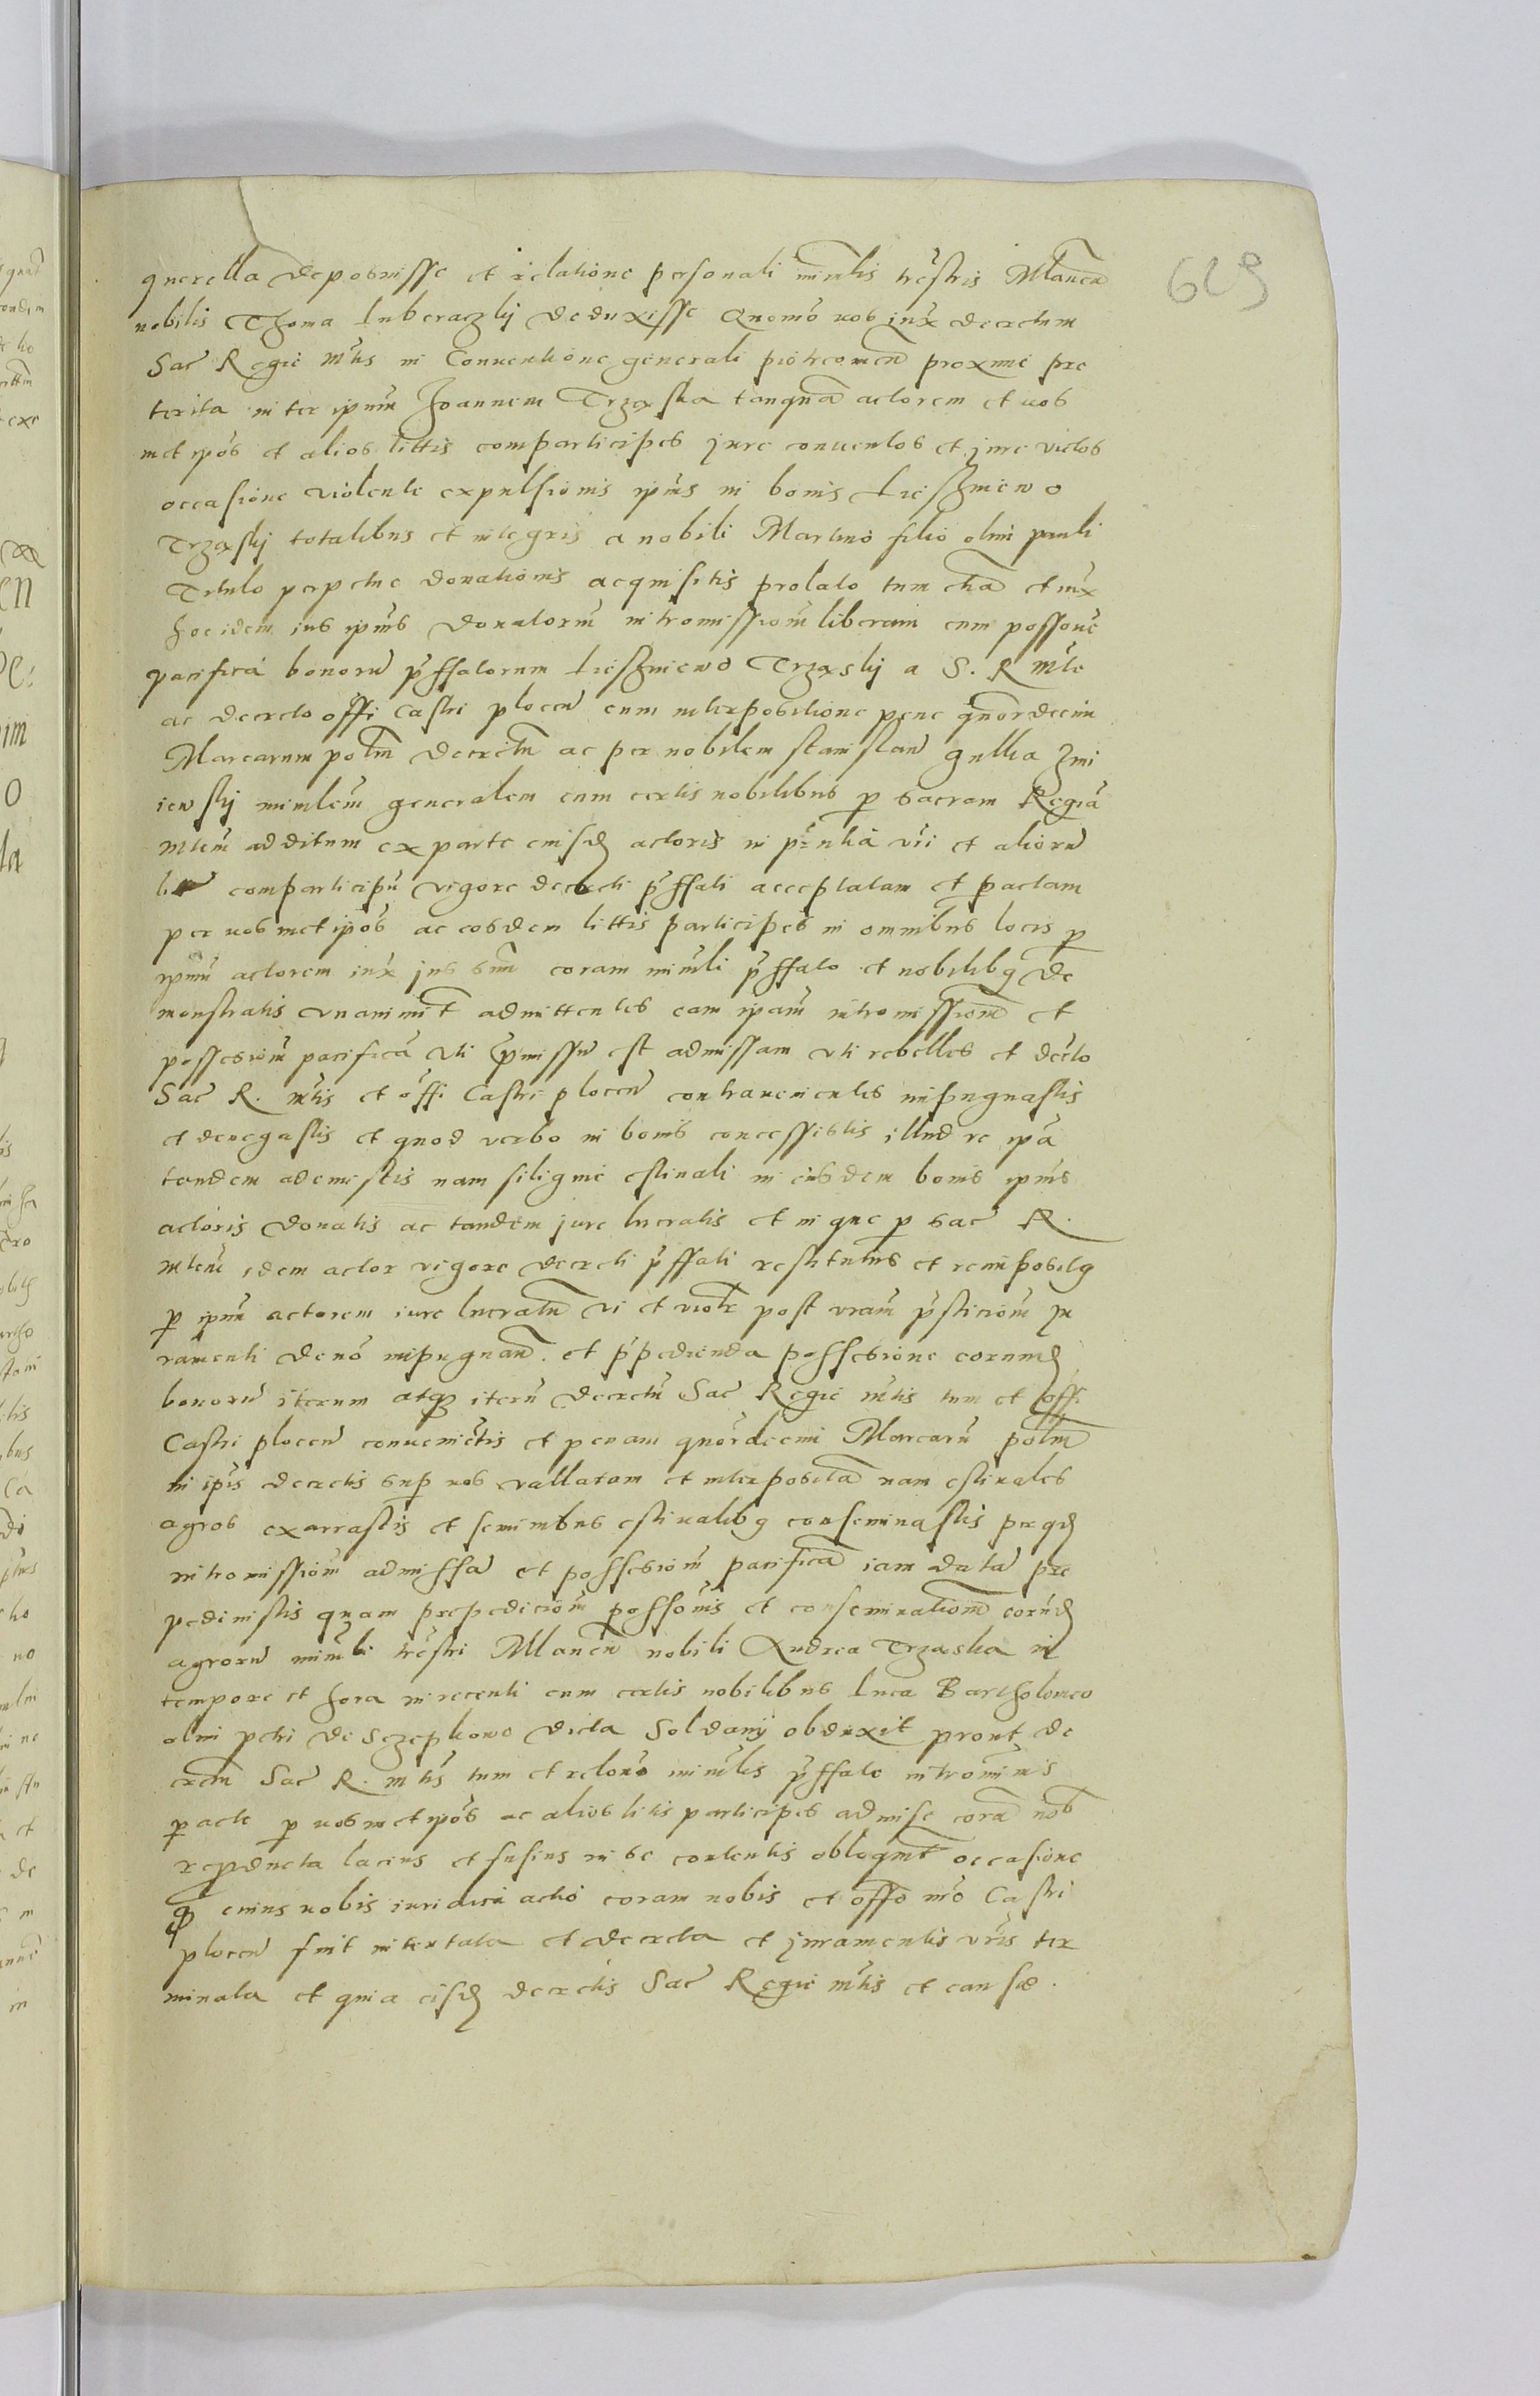 629
querella deposuisse et relatione personali mi̅rlis tr̅estris Mlawen̅
nobilis Thoma Luberaczky deduxisse Quomo̅ vos iux̅ decretum
Sac̅ Regie M̅tis in Conventione generali piotrcovien̅ proxime pre
terita inter ipsum̅ Joannem Trzaska tanqua̅ actorem et vos
met ip̅os et alios littis comparticipes jure conventos et jure victos
occasione violente expulsionis ip̅ius in bonis
Trzasky totalibus et integris a nobili Martino filio olim̅ pauli
Titulo perpetue donationis acquisitis prolato tum etia̅ et iux̅
hoc idem ius ip̅ius donatoriu̅ intromissiom̅ liberam cum posso̅ne
pacifica̅ bonoru̅ p̅ffatorum Trzasky a S. R M̅te
ac decreto offi̅ Castri plocen̅ cum interpositione pene quo̅rdecim
Marcarum polm̅ decretu̅ ac per nobilem stanislau̅ gulka
iewsky mi̅rlem̅ generalem cum certis nobilibus p sacram Regia̅
M̅tem̅ additum ex parte eiusd̅ actoris in p̅ntia̅ vr̅i et alioru̅
comparticipu̅ vigore decreti p̅ffati acceptatam et pactam
per vosmet ip̅os ac eosdem littis participes in omnibus locis p
ip̅um actorem iux̅ jus suu̅ coram mi̅rli p̅ffato et nobilibq de
monstratis vnanimit̅ admittentes eam ipam̅ intromissiom̅ et
possesiom̅ pacifica̅ vti p̅missu̅ est admissam vti rebelles et decr̅to
Sac̅ R. M̅tis et offi̅ Castri plocen̅ contravenientes inpugnastis
et denegastis et quod verbo in bonis concessistis illud re ip̅a
tandem ademistis nam siligine estivali in eisdem bonis ip̅ius
actoris donatis ac tandem jure lucratis et in que p sac̅ R.
M̅tem̅ idem actor vigore decreti p̅ffati restitutus et reimpositq
p ip̅um actorem iure lucratu̅ vi et viol̅r post vram̅ p̅stitiom̅ ju
ramenti denō inpugnan̅. et p̅pedienda possesione eorumd̅
bonoru̅ iterum atq iteru̅ decretu̅ Sac̅ Regie M̅tis tum et offi̅
Castri plocen̅ convenietis et penam quo̅rdecim Marcaru̅ polm̅
in ip̅is decretis sup̅ vos vallatam et interposita̅ nam estivales
agros exarrastis et seminibus estivalibq conseminastis preqd̅
intromissiom̅ admissa̅ et possesiom̅ pacifica̅ iam data̅ pre
pedivistis quam prepediciom̅ posso̅nis et conseminatiom̅ eoru̅d̅
agroru̅ mi̅rli tr̅estri Mlawen̅ nobili Andrea Trzaska in
tempore et hora in recenti cum certis nobilibus Luca Bartholomeo
olim petri de Sczepkowo dicta Soldany obduxit prout de
cretu̅ Sac̅ R. M̅tis tum et relo̅ne mi̅rlis p̅ffate intromi̅nis
pacte p vosmet ip̅os ac alios litis participes admise cora̅ nob̅
repducta lacius et fusius in se contentis obloqunt̅ occasione
cuius nobis iuridica actio coram nobis et offo̅ nr̅o Castri
plocen̅ fuit intentata et decreta et juramentis vr̅is ter
minata et quia eisd̅ decretis Sac̅ Regie M̅tis et cause.